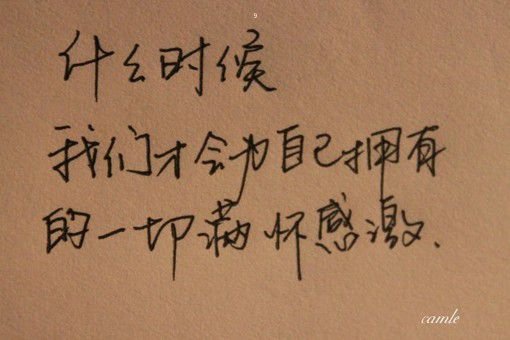 9
什么时候
我们才会为自己拥有
的一切满怀感激.
camle